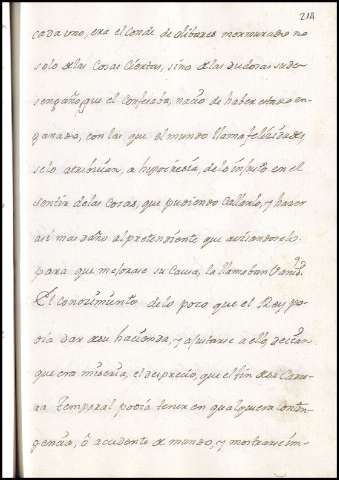 214
cada uno, era el Conde de olibares mormurado no
solo de las Cosas Ciertas, sino de las dudosas su de-
sengaño que el confesaba, nacio de haber estado en-
ganado, con las que el mundo llama felizidades
selo atribuian, a hipocresia, de lo infuto en el
sentir de las Cosas, que pudiendo Callarlo, y hazer
asi mas daño al pretendiente que avisandoselo.
para que mejorase su Causa, la llamaban
El conozimiento de lo poco que el Rey po-
dia dar de su hacienda, y ajustarse a ello, decian
que era miseria, el desprecio, que el fin de la Carre-
ra Temporal podia tener en qualquiera contin-
gencia, ô accidente de mundo, y mostrarse im-